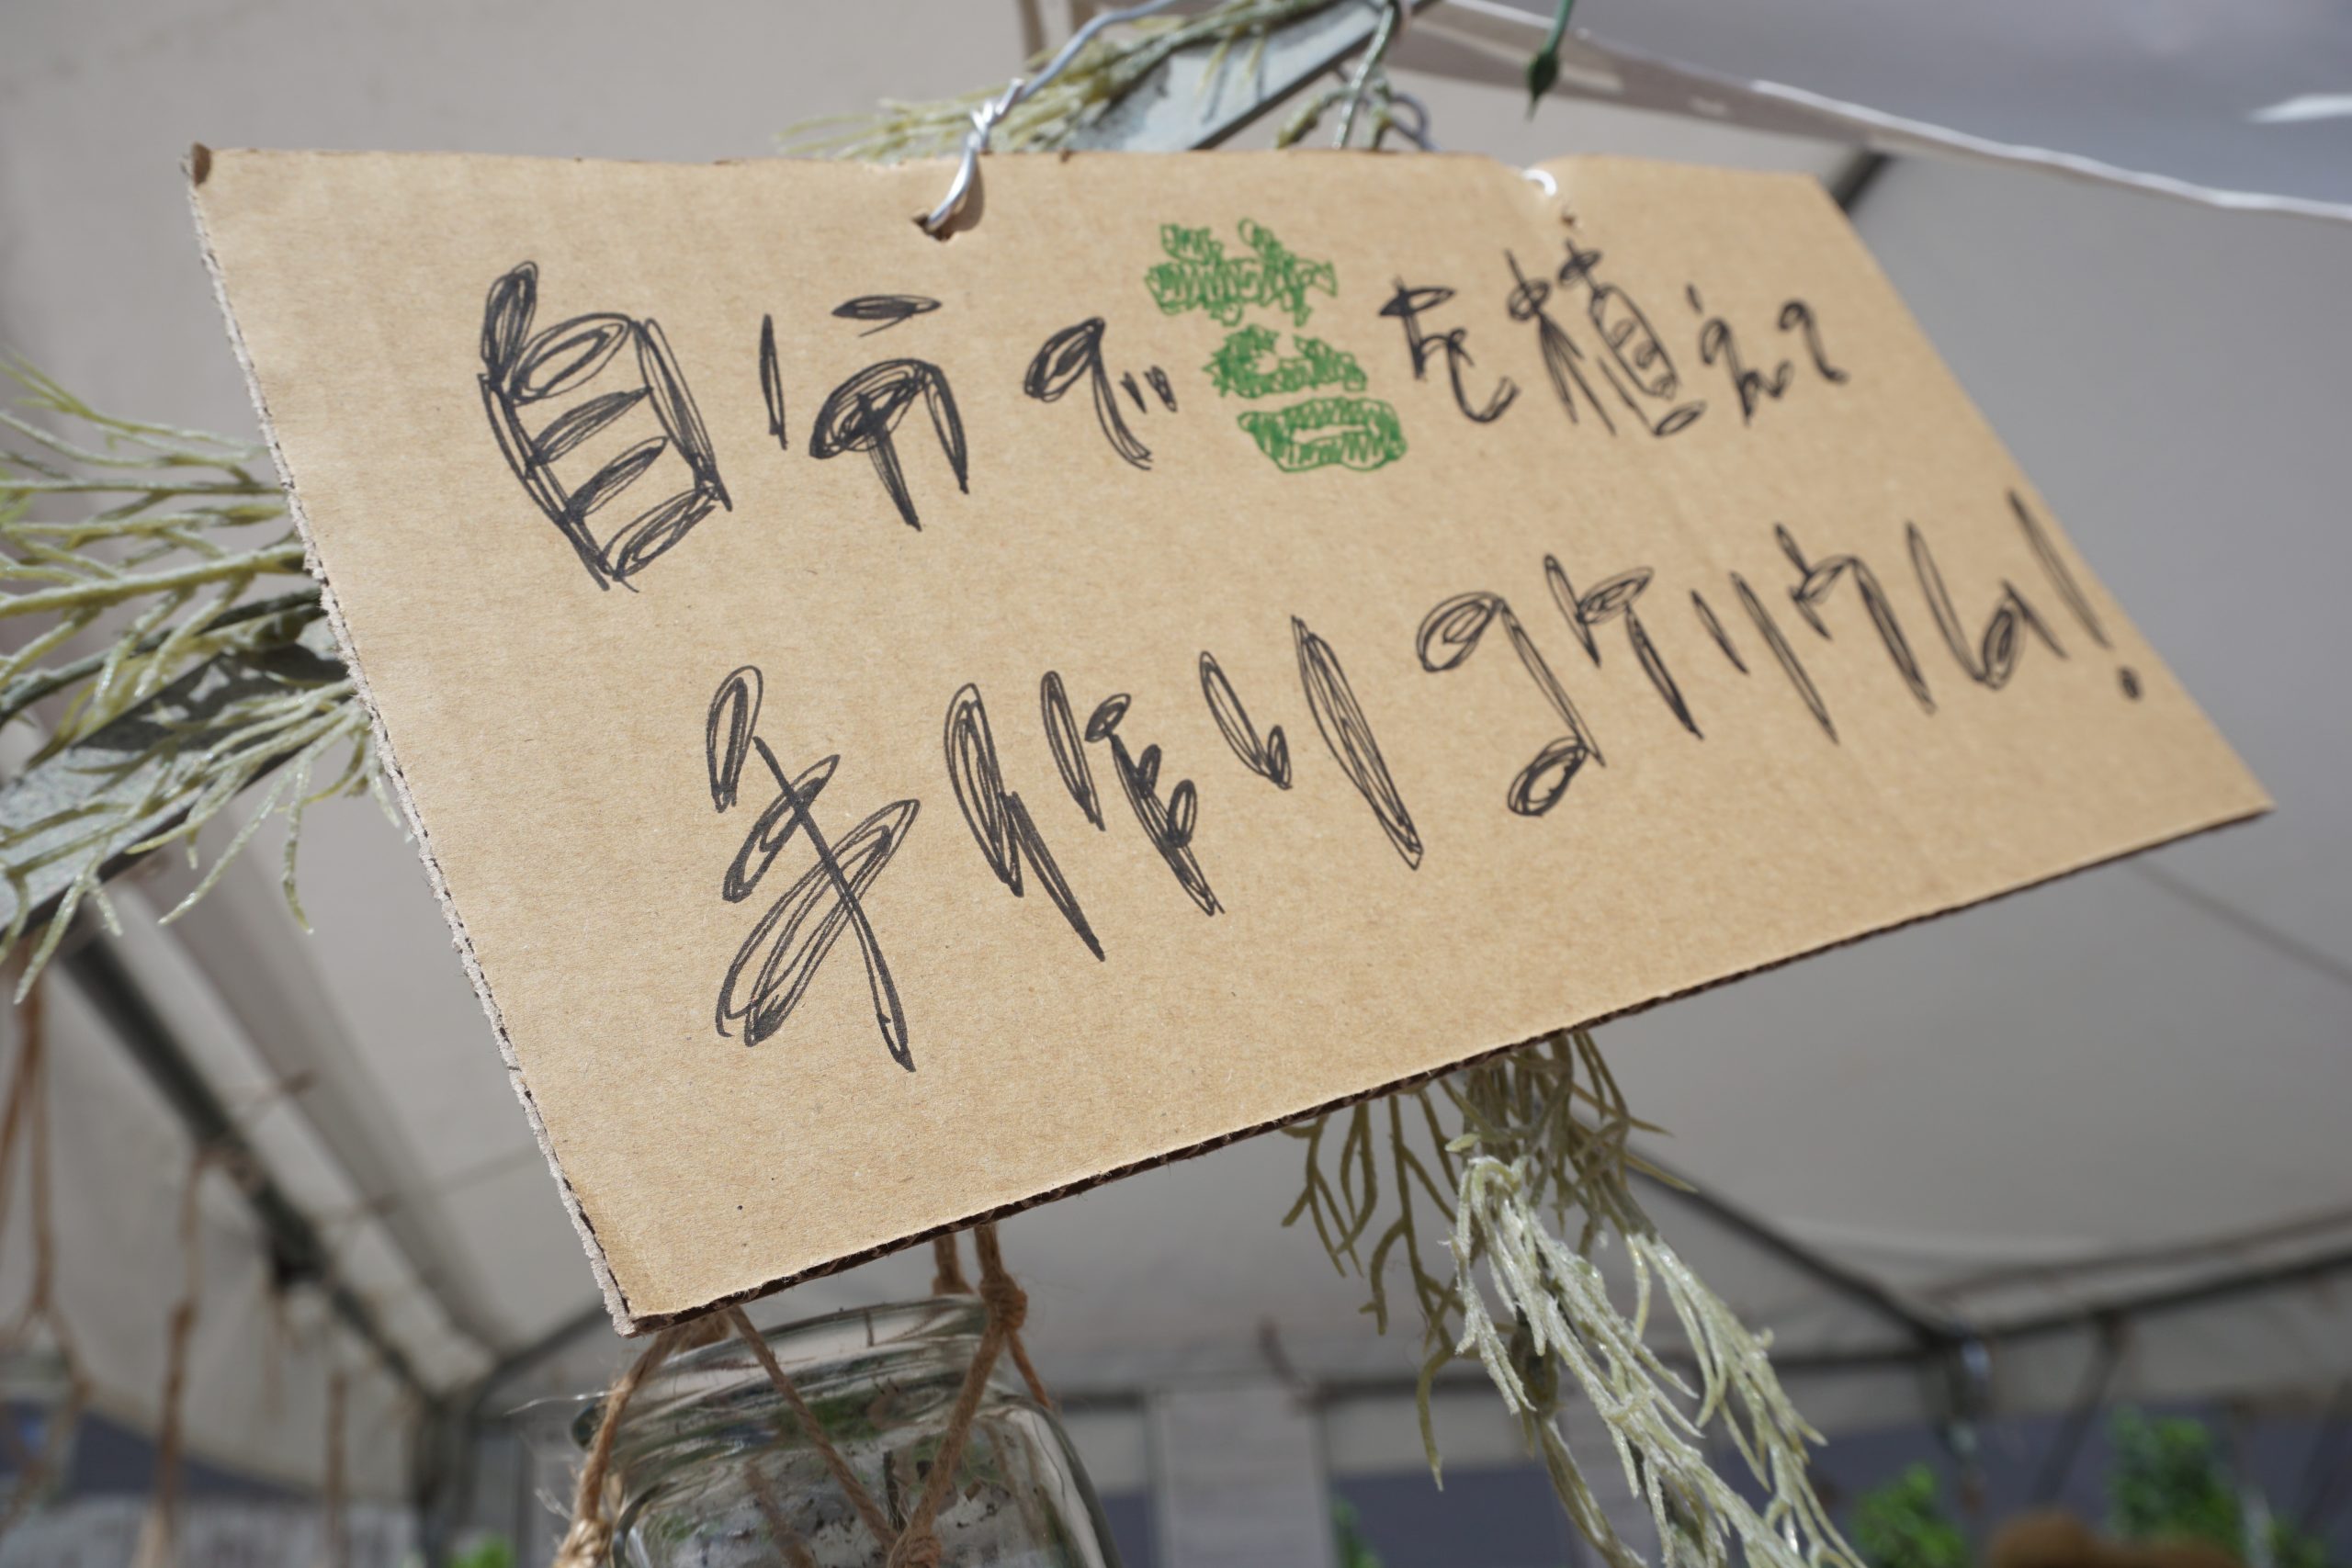 自分で苔を植えて
手作りコケリウム!